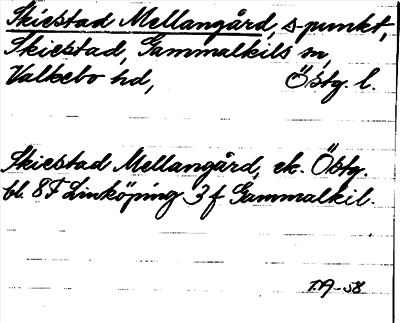 Skiestad Mellangård, s-punkt,
Skiestad, Gammalkils sn,
Valkebo hd, Östg. l.
Skiestad Mellangård, ek. Östg.
bl. 8F Linköping 3 f Gammalkil.
T.A-58